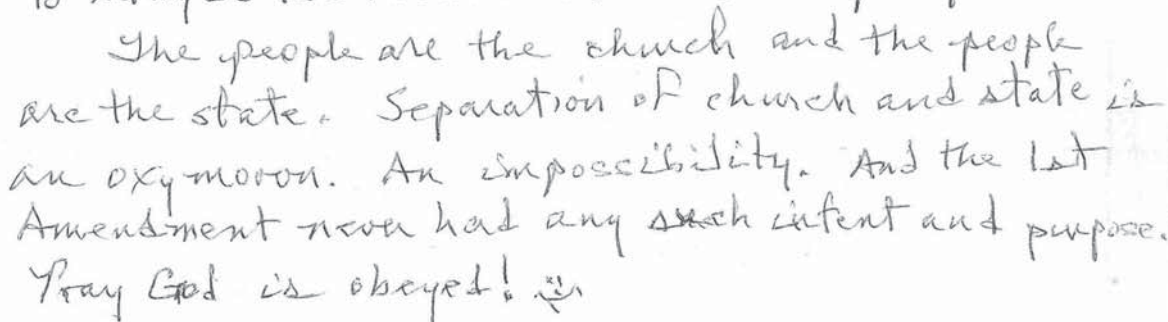 The people are the church and the people
are the state. Separation of church and state is
an oxymoron. An impossibility. And the 1st
Amendment never had any such intent and purpose.
Pray God is obeyed!